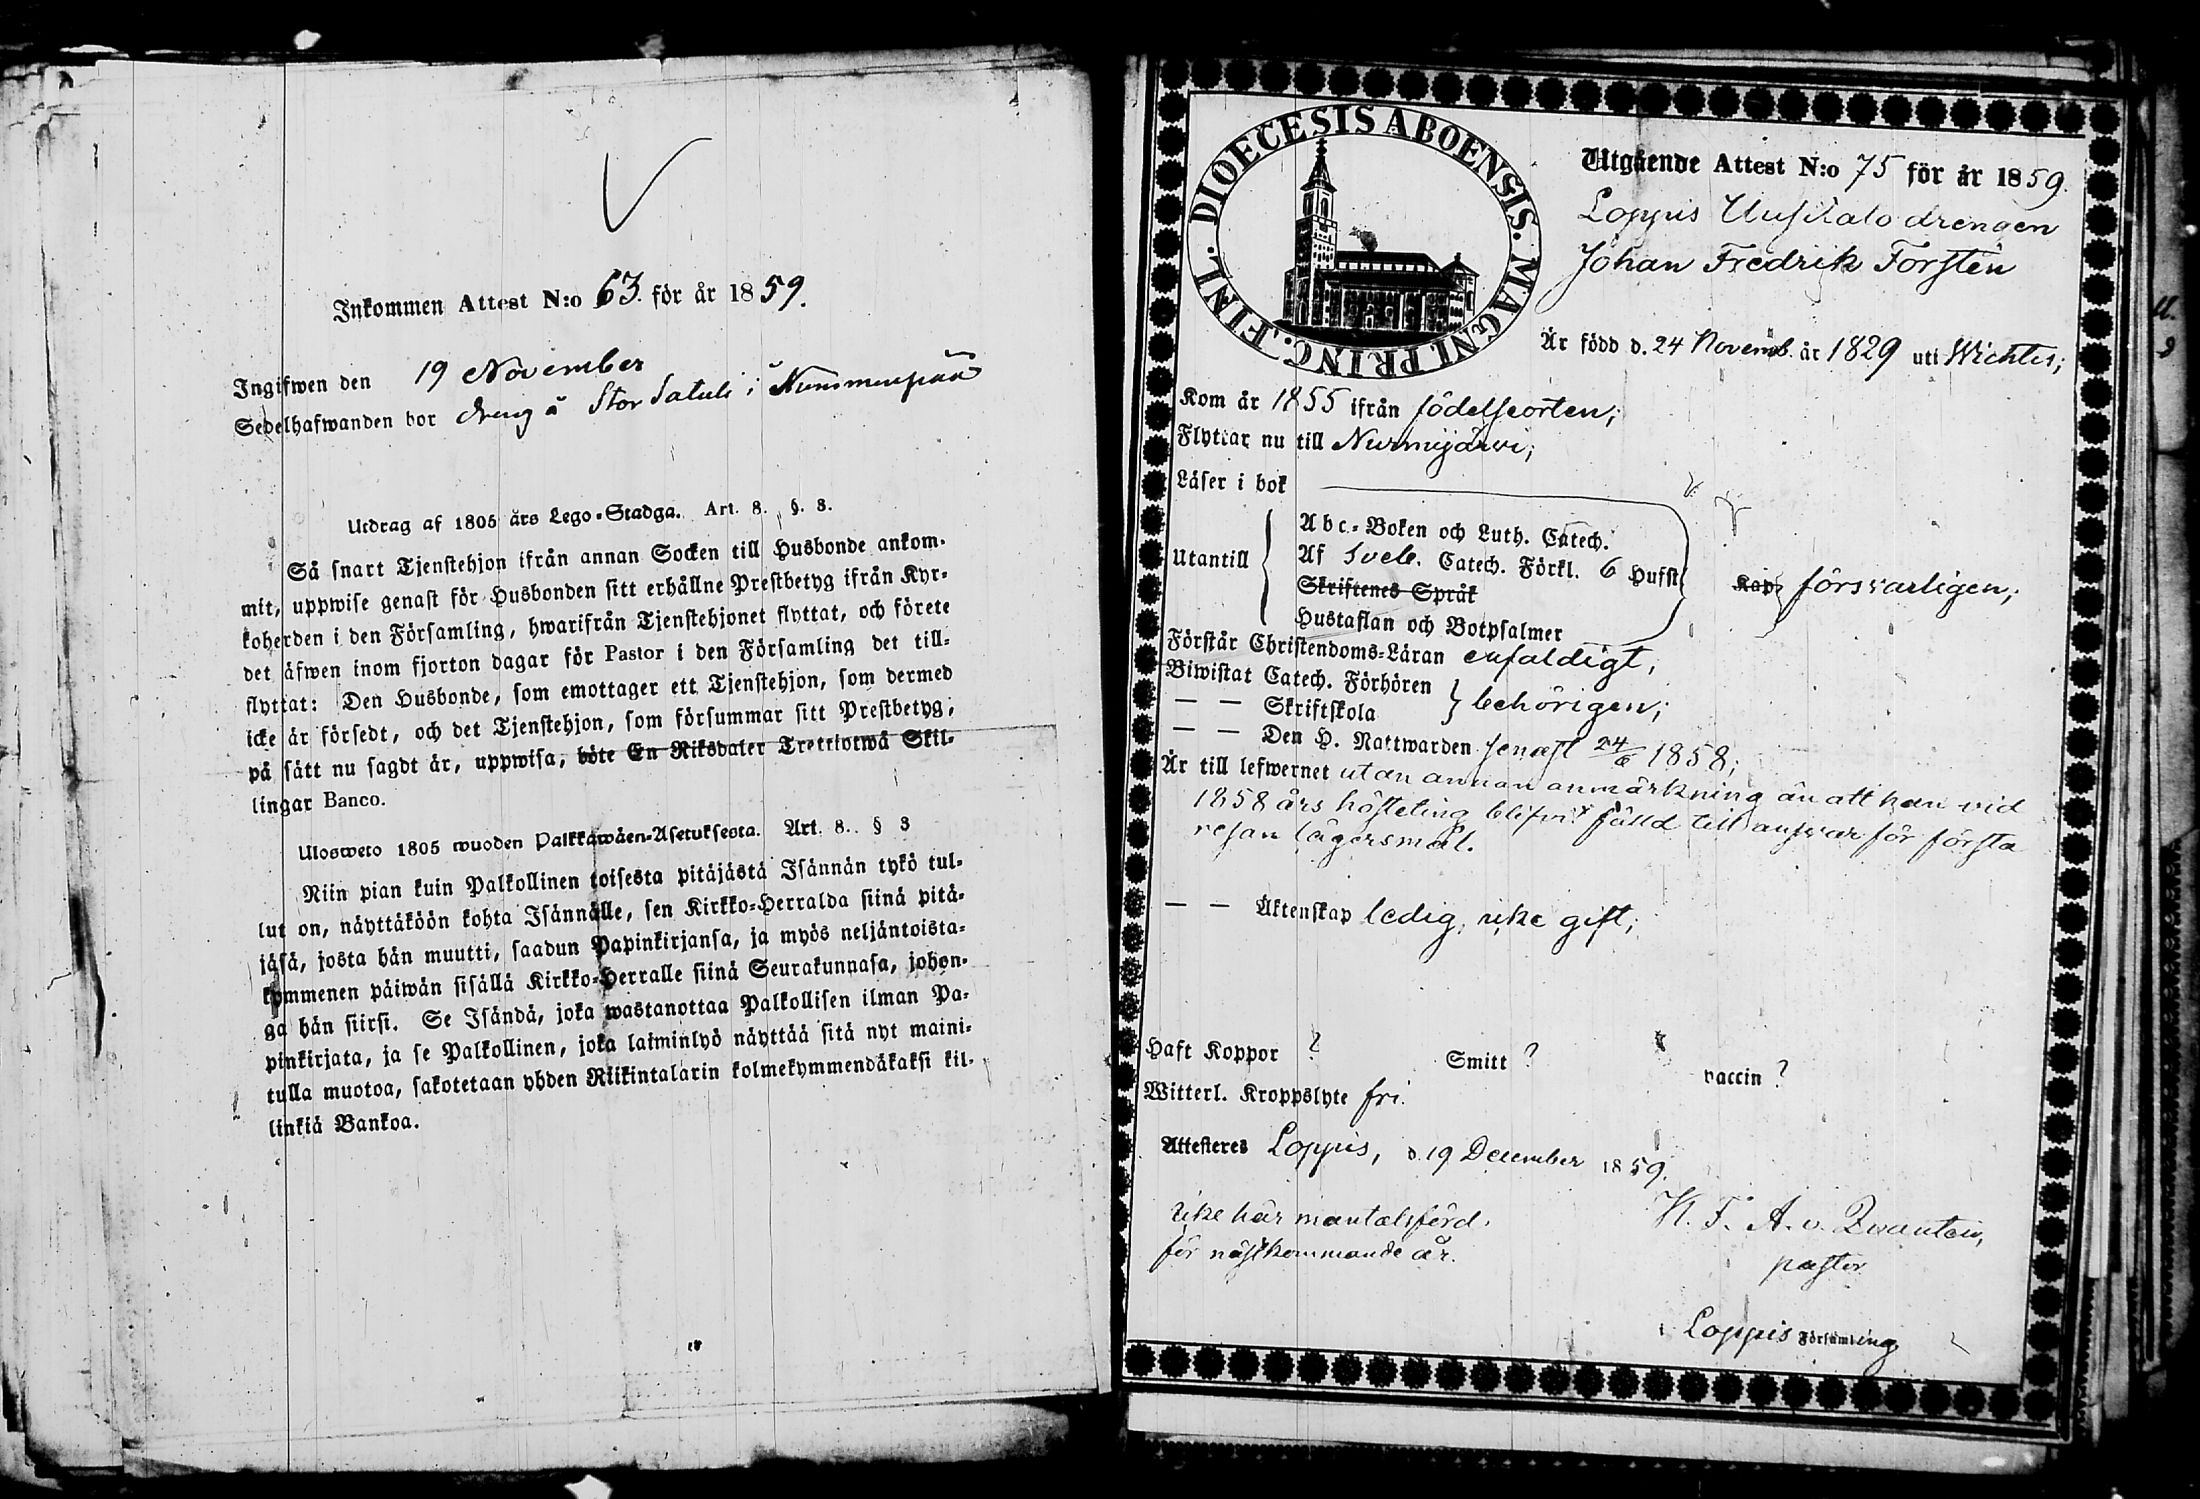 Inkommen Attest N:o 63. för år 1859.
Ingifwen den 19 November
Sedelhafwanden bor dreng å Stor Satuli i Nummenpää
Utdrag af 1805 års Lego-Stadga. Art. 8. §. 3.
Så snart Tjenstehjon ifrån annan Socken till Husbonde ankom-
mit, uppwise genast för Husbonden sitt erhållne Prestbetyg ifrån Kyr-
koherden i den Församling, hwarifrån Tjenstehjonet flyttat, och förete
det äfwen inom fjorton dagar för Pastor i den Församling det till-
flyttat: Den Husbonde, som emottager ett Tjenstehjon, som dermed
icke är försedt, och det Tjenstehjon, som försummar sitt Prestbetyg,
på sätt nu sagdt är, uppwisa, böte En Riksdaler Trettiotwå Skil-
lingar Banco.
Ulosweto 1805 wuoden Palkkawäen-Asetuksesta. Art. 8. § 3
Niin pian kuin Palkollinen toisesta pitäjästä Isännän tykö tul-
lut on, näyttäköön kohta Isännälle, sen Kirkko-Herralda siinä pitä-
jäsä, josta hän muutti, saadun Papinkirjansa, ja myös neljäntoista-
kymmenen päiwän sisällä Kirkko-Herralle siinä Seurakunnasa, johon-
ga hän siirsi. Se Isändä, joka wastanottaa Palkollisen ilman Pa-
pinkirjata, ja se Palkollinen, joka laiminlyö näyttää sitä nyt maini-
tulla muotoa, sakotetaan yhden Riikintalarin kolmekymmendäkaksi kil-
linkiä Bankoa.
DIOECESIS ABOENSIS. MAGNI PRINC. FINL.
Utgående Attest N:o 75 för år 1859.
Loppis Uusitalo drengen
Johan Fredrik Forstén
Är född d. 24 Novemb. år 1829 uti Wichtis;
Kom år 1855 ifrån födelseorten;
Flyttar nu till Nurmijärvi;
Läser i bok
Utantill
Abc-Boken och Luth. Catech.
Af Sveb. Catech. Förkl. 6 Hufst
Skriftenes Språk
Hustaflan och Botpsalmer
Kap försvarligen;
Förstår Christendoms-Läran enfaldigt;
Biwistat Catech. Förhören
— — Skriftskola
behörigen;
— — Den H. Nattwarden senast 24/6 1858;
Är till lefwernet utan annan anmärkning än att han vid
1858 års hösteting blifvit fälld till ansvar för första
resan lägersmål.
— — Äktenskap ledig, icke gift;
Haft Koppor ? Smitt ? vaccin ?
Witterl. Kroppslyte fri.
Attesteres Loppis, d. 19 December 1859.
Icke här mantalsförd
för nästkommande år.
K. F. A. v. Qvanten,
pastor
i Loppis Församling